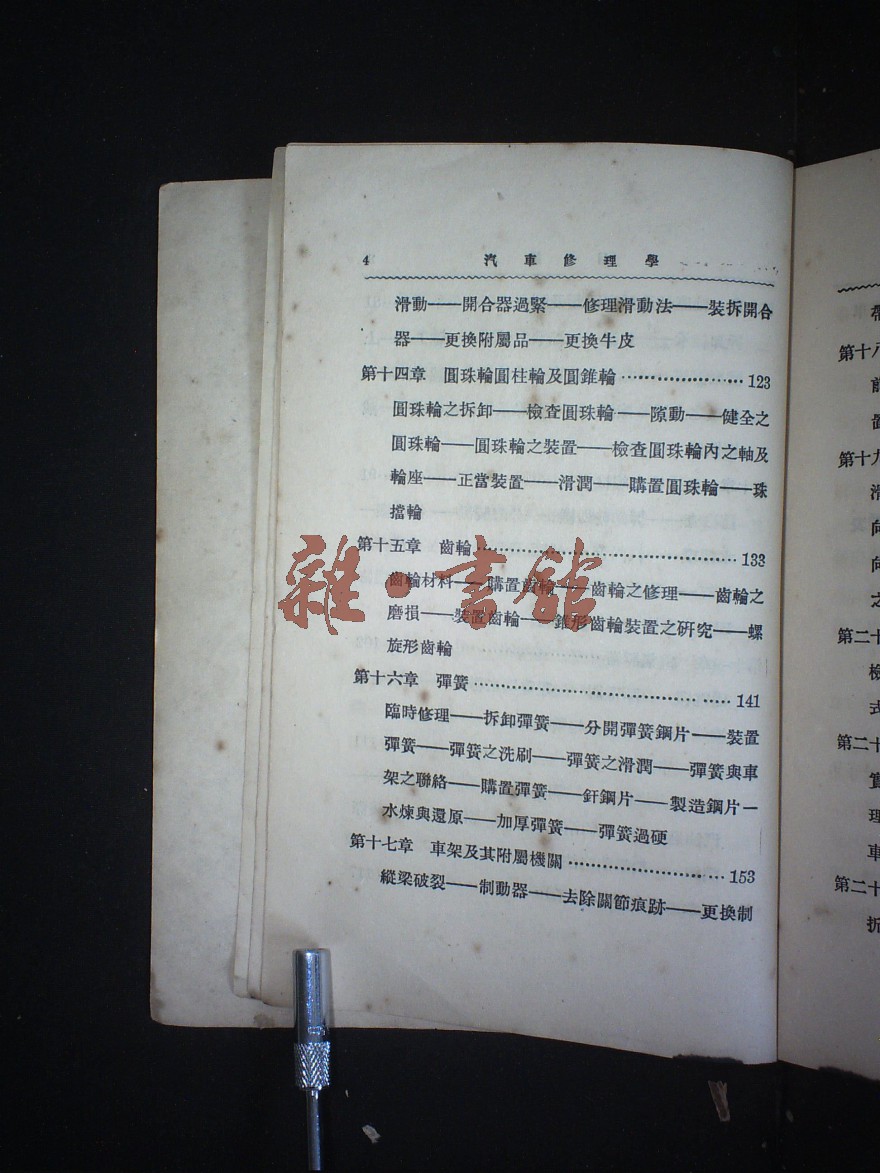 4 汽車修理學
滑動——開合器過緊——修理滑動法——裝拆開合
器——更換附屬品——更換牛皮
第十四章 圓珠輪圓柱輪及圓錐輪…………………123
圓珠輪之拆卸——檢查圓珠輪——隙動——健全之
圓珠輪——圓珠輪之裝置——檢查圓珠輪內之軸及
輪座——正當裝置——滑潤——購置圓珠輪——珠
擋輪
第十五章 齒輪……………………………………133
齒輪材料——購置齒輪——齒輪之修理——齒輪之
磨損——裝置齒輪——錐形齒輪裝置之研究——螺
旋形齒輪
第十六章 彈簧……………………………………141
臨時修理——拆卸彈簧——分開彈簧鋼片——裝置
彈簧——彈簧之洗刷——彈簧之滑潤——彈簧與車
架之聯絡——購置彈簧——釬鋼片——製造鋼片—
水煉與還原——加厚彈簧——彈簧過硬
第十七章 車架及其附屬機關………………………153
縱梁破裂——制動器——去除關節痕跡——更換制
雜·書館
第十八
第十九
滑
向
向
之
第二十
檢
式
第二十
實
理
車
第二十
折